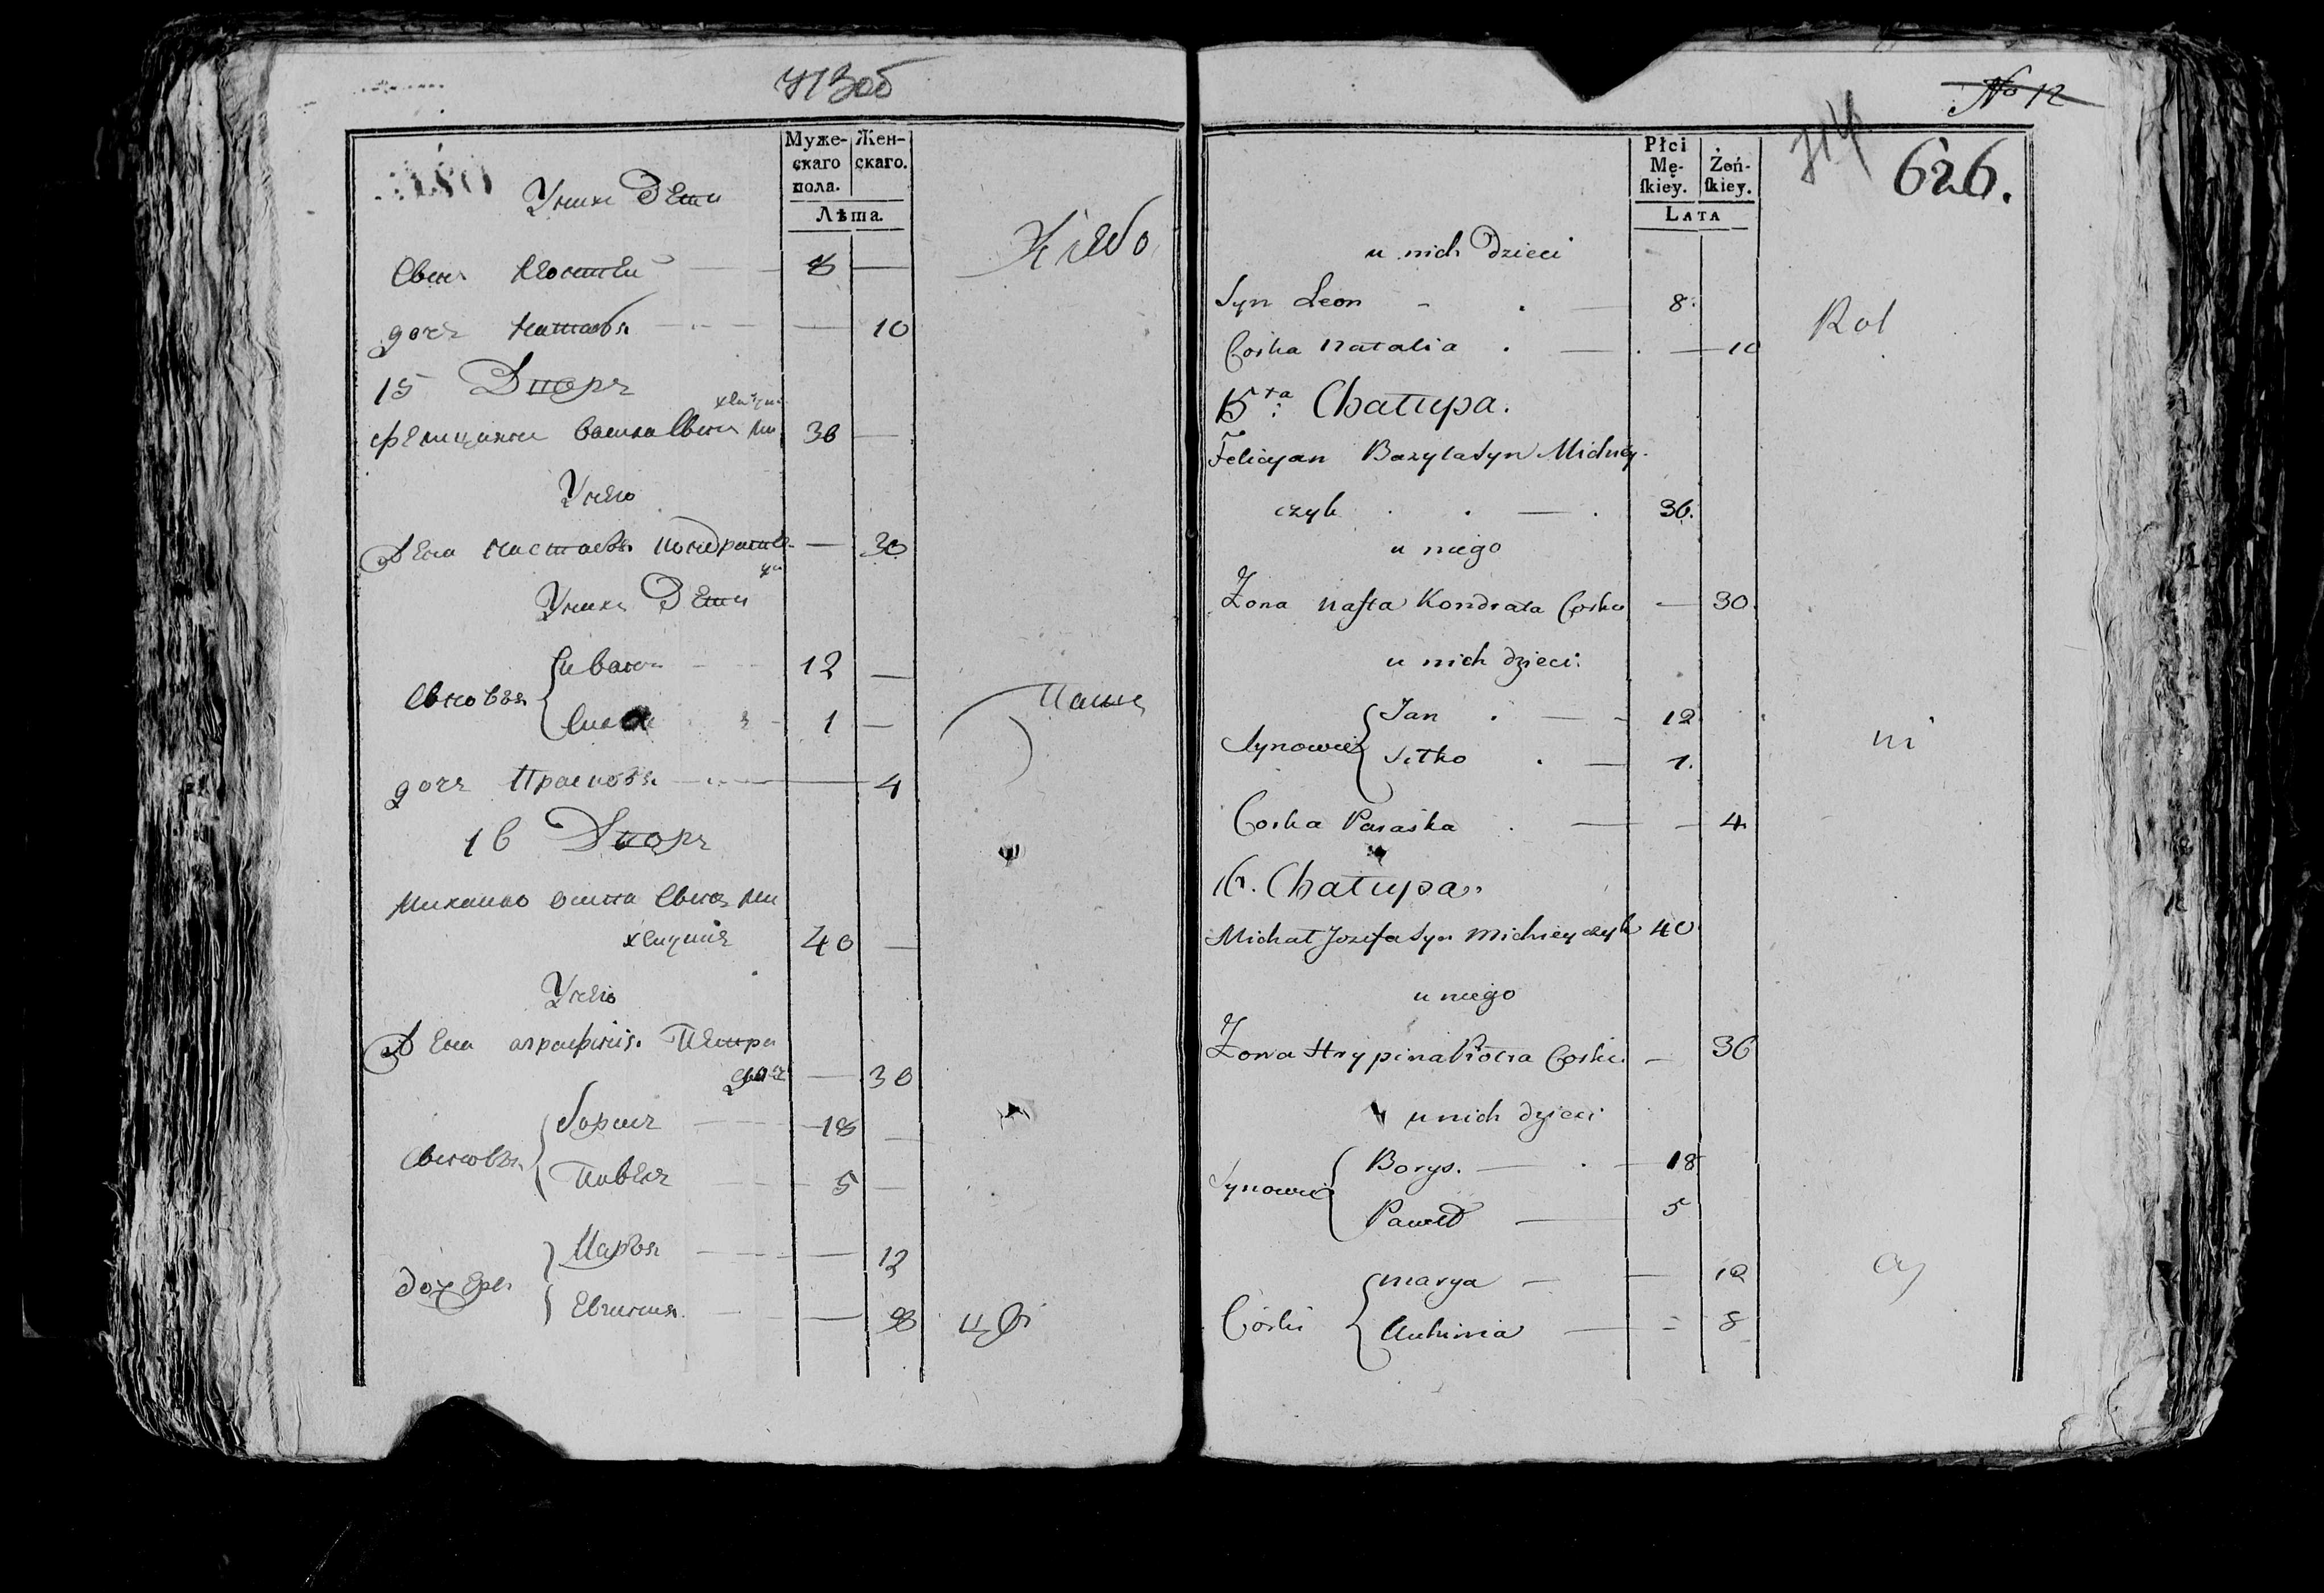 713об
Муже-
скаго
пола.
Жен-
скаго.
Лѣта.
У нихъ Дѣти
Сынъ 8
дочь 10
15 Дворъ
Василья Сынъ Ми
36
У него
Жена Настасья Кондратье
30
У нихъ Дѣти
Сыновья
Иванъ 12
1
дочь Прасковья 4
16 Дворъ
Михайло Осипа Сынъ Ми
40
У него
Жена Аграфина Петра
дочь 30
Сыновья
Борисъ 18
Павелъ 5
дочери
Марья 12
8
No 12
714
626.
Płci
Mę-
ſkiey.
Żeń-
ſkiey.
LATA
u nich Dzieci
Syn Leon 8.
Corka Natalia 10
Rol
15ta: Chałupa.
Felicyan Bazyla Syn Michiey-
czyk 36.
u niego
Żona Nasta Kondrata Corka 30.
u nich dzieci:
Synowie
Jan 12
1.
ni
Corka Paraska 4.
16. Chałupa.
Michał Jozefa Syn Michieyczyk 40
u niego
Żona Hrypina Piotra Corka 36
u nich dzieci
Synowie
Borys. 18
Paweł 5
Córki
Marya 12
8
cy